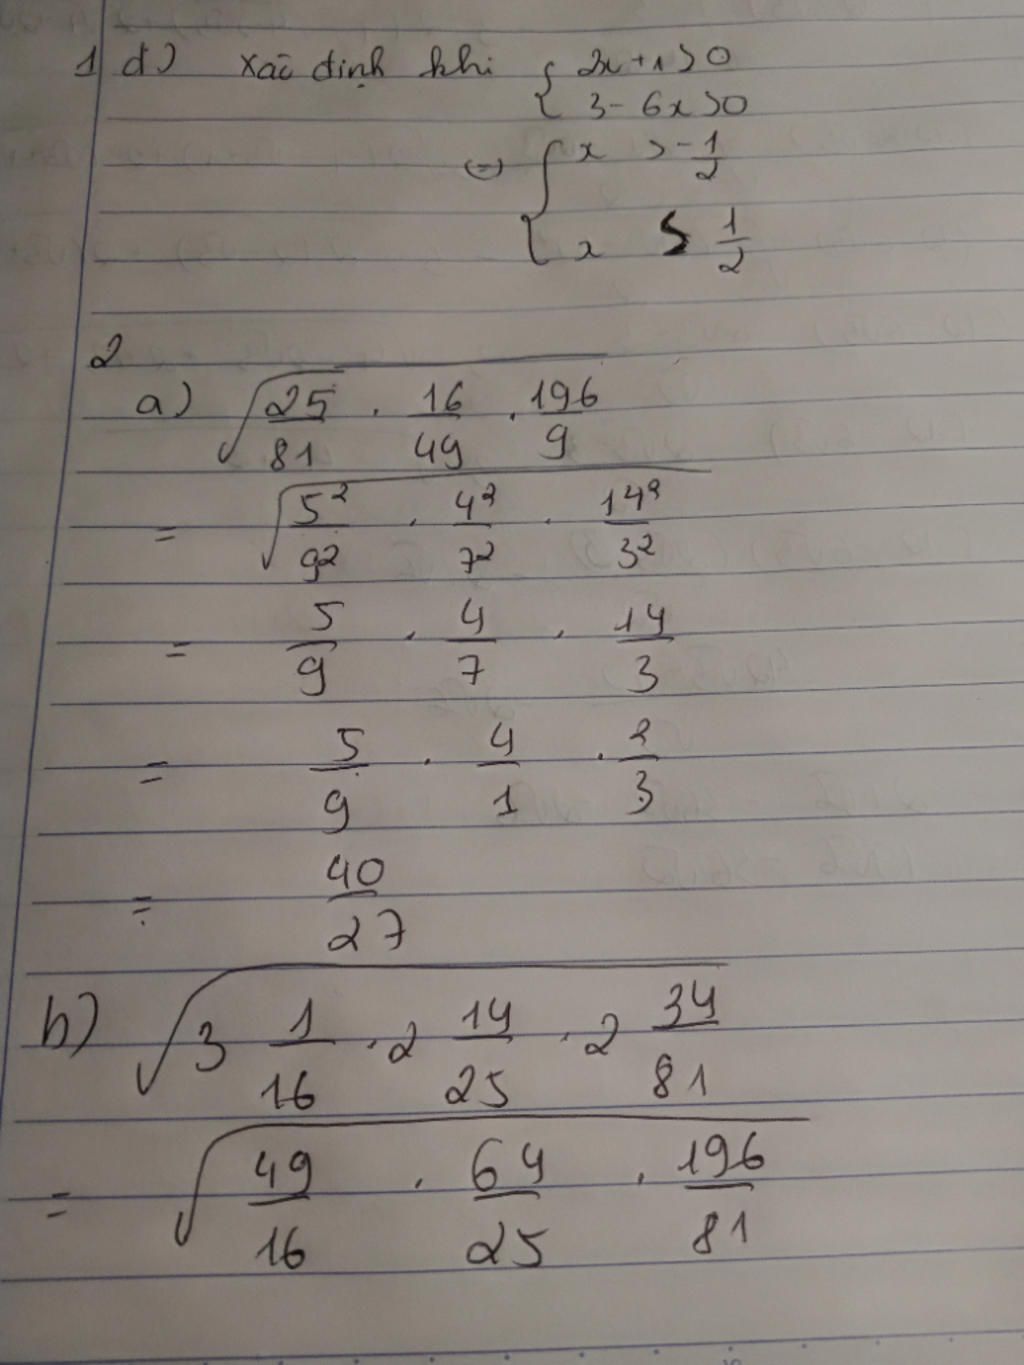 1 d) Xác định khi { 2x + 1 > 0
3 - 6x > 0
(=) { x > -1/2
x ≤ 1/2
2
a) √(25/81 . 16/49 . 196/9)
= √(5²/9² . 4²/7² . 14²/3²)
= 5/9 . 4/7 . 14/3
= 5/9 . 4/1 . 2/3
= 40/27
b) √(3 1/16 . 2 14/25 . 2 34/81)
= √(49/16 . 64/25 . 196/81)